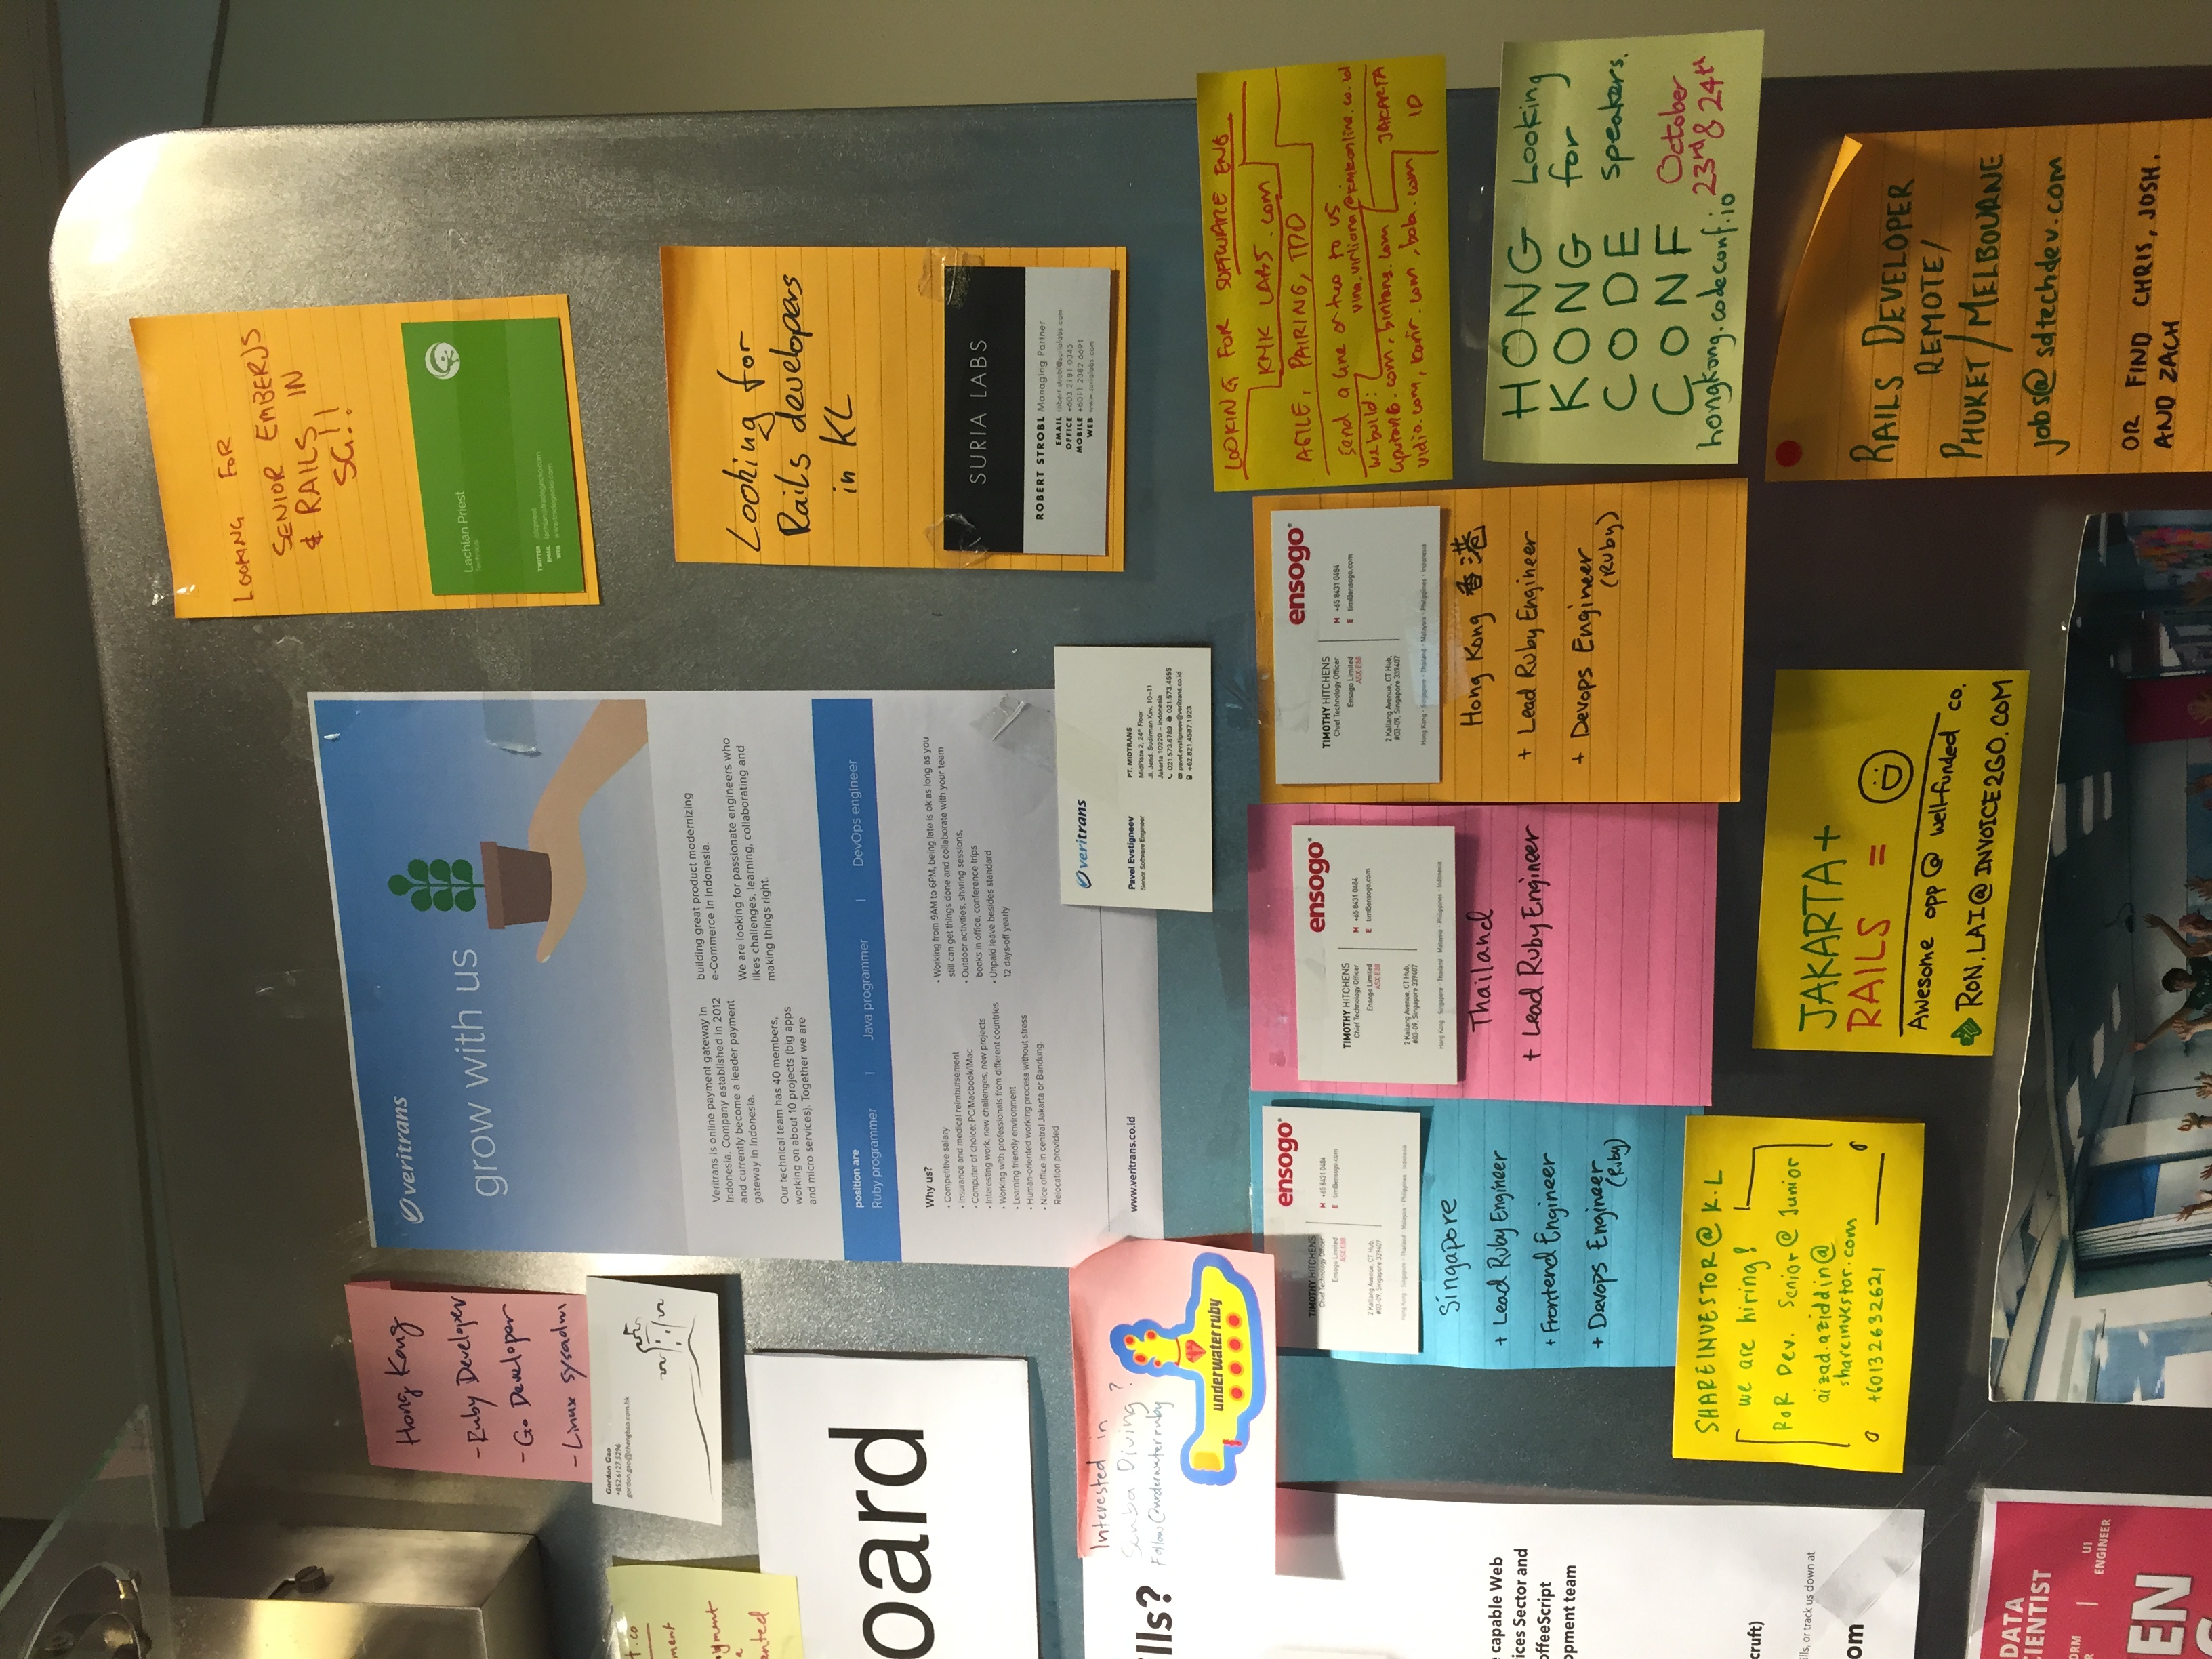 LOOKING FOR
SENIOR EMBERJS
& RAILS IN
SG!!
Lachlan Priest
Technical
TWITTER
EMAIL lachlan@tradegecko.com
WEB www.tradegecko.com
Hong Kong
- Ruby Developer
- Go Developer
- Linux sysadm
Gordon Gao
+852.6127.5296
gordon.gao@chengbao.com.hk
t.co
ment
oyment
a
anted
oard
veritrans
grow with us
Veritrans is online payment gateway in
Indonesia. Company established in 2012
and currently become a leader payment
gateway in Indonesia.
Our technical team has 40 members,
working on about 10 projects (big apps
and micro services). Together we are
building great product modernizing
e-Commerce in Indonesia.
We are looking for passionate engineers who
likes challenges, learning, collaborating and
making things right.
position are
Ruby programmer | Java programmer | DevOps engineer
Why us?
• Competitive salary
• Insurance and medical reimbursement
• Computer of choice: PC/Macbook/iMac
• Interesting work, new challenges, new projects
• Working with professionals from different countries
• Learning friendly environment
• Human-oriented working process without stress
• Nice office in central Jakarta or Bandung.
Relocation provided
• Working from 9AM to 6PM, being late is ok as long as you
still can get things done and collaborate with your team
• Outdoor activities, sharing sessions,
books in office, conference trips
• Unpaid leave besides standard
12 days-off yearly
www.veritrans.co.id
veritrans
Pavel Evstigneev
Senior Software Engineer
PT. MIDTRANS
MidPlaza 2, 24th Floor
Jl. Jend. Sudirman Kav. 10-11
Jakarta 10220 - Indonesia
021.573.6789 021.573.4555
pavel.evstigneev@veritrans.co.id
+62.821.4587.1923
Looking for
Rails developers
in KL
SURIA LABS
ROBERT STROBL Managing Partner
EMAIL robert.strobl@surialabs.com
OFFICE +603 2181 0345
MOBILE +6011 2382 6691
WEB www.surialabs.com
lls?
Interested in
Scuba Diving?
Follow @underwaterruby
underwater ruby
ensogo
TIMOTHY HITCHENS
Chief Technology Officer
Ensogo Limited
ASX:E88
2 Kallang Avenue, CT Hub,
#03-09, Singapore 339407
M +65 8431 0484
E tim@ensogo.com
Hong Kong · Singapore · Thailand · Malaysia · Philippines · Indonesia
Singapore
+ Lead Ruby Engineer
+ Frontend Engineer
+ Devops Engineer
(Ruby)
ensogo
TIMOTHY HITCHENS
Chief Technology Officer
Ensogo Limited
ASX:E88
2 Kallang Avenue, CT Hub,
#03-09, Singapore 339407
M +65 8431 0484
E tim@ensogo.com
Hong Kong · Singapore · Thailand · Malaysia · Philippines · Indonesia
Thailand
+ Lead Ruby Engineer
ensogo
TIMOTHY HITCHENS
Chief Technology Officer
Ensogo Limited
ASX:E88
2 Kallang Avenue, CT Hub,
#03-09, Singapore 339407
M +65 8431 0484
E tim@ensogo.com
Hong Kong · Singapore · Thailand · Malaysia · Philippines · Indonesia
Hong Kong 香港
+ Lead Ruby Engineer
+ Devops Engineer
(Ruby)
LOOKING FOR SOFTWARE ENG
KMK LABS.com
AGILE, PAIRING, TDD
Send a line or two to us
vina.virliana@kmkonline.co.id
we build:
liputan6.com, bintang.com
vidio.com, karir.com, bola.com
JAKARTA
ID
HONG
KONG
CODE
CONF
Looking
for
speakers.
October
23rd & 24th
hongkong.codeconf.io
e capable Web
ices Sector and
offeeScript
opment team
cruft)
ills, or track us down at
om
SHAREINVESTOR @ K.L
we are hiring!
RoR Dev. Senior @ Junior
aizad.aziddin@
shareinvestor.com
+60132632621
JAKARTA +
RAILS =
Awesome opp @ well-funded co.
RON.LAI@INVOICE2GO.COM
RAILS DEVELOPER
REMOTE/
PHUKET/MELBOURNE
jobs@sdtechdev.com
OR FIND CHRIS, JOSH.
AND ZACH
DATA
CIENTIST
ORM
R | UI
ENGINEER
EN